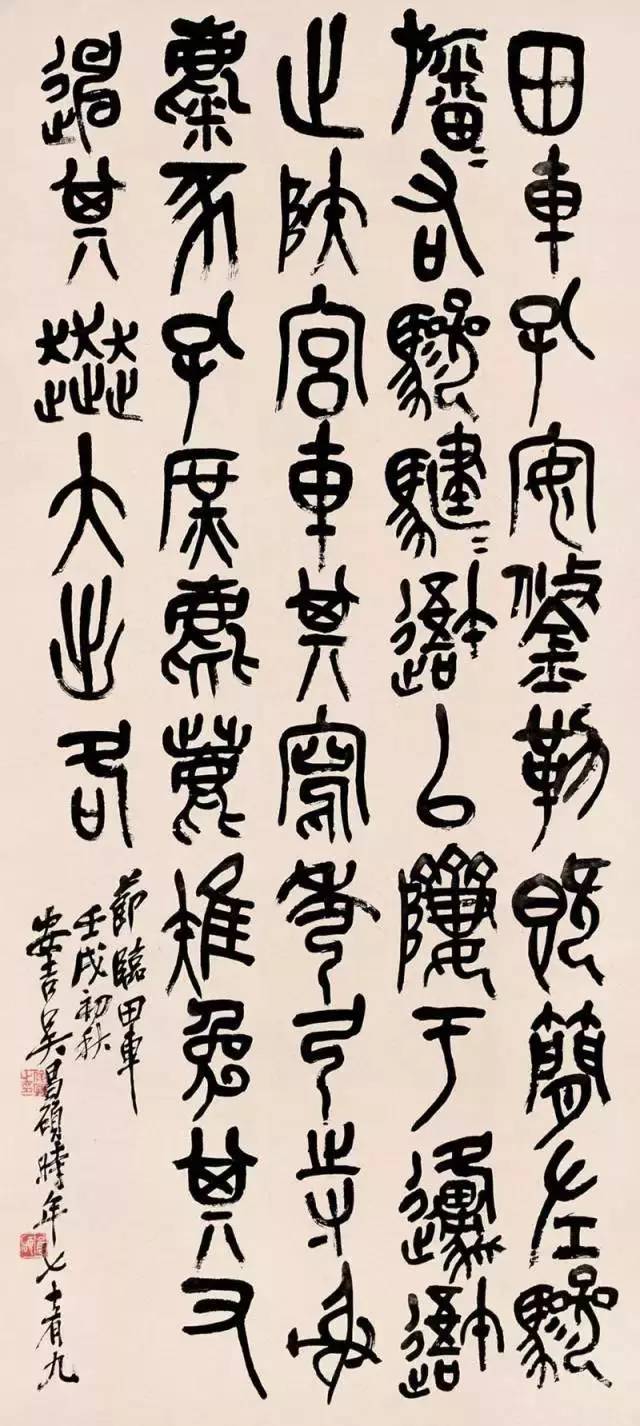 田車孔安鋚勒既簡左驂
旛=右驂騝=以隮于邍
止陜宮車其寫秀弓寺射
麋豕孔庶麀鹿雉兔其又
其奔大出各
節臨田車
壬戌初秋
安吉吳昌碩時年七十有九